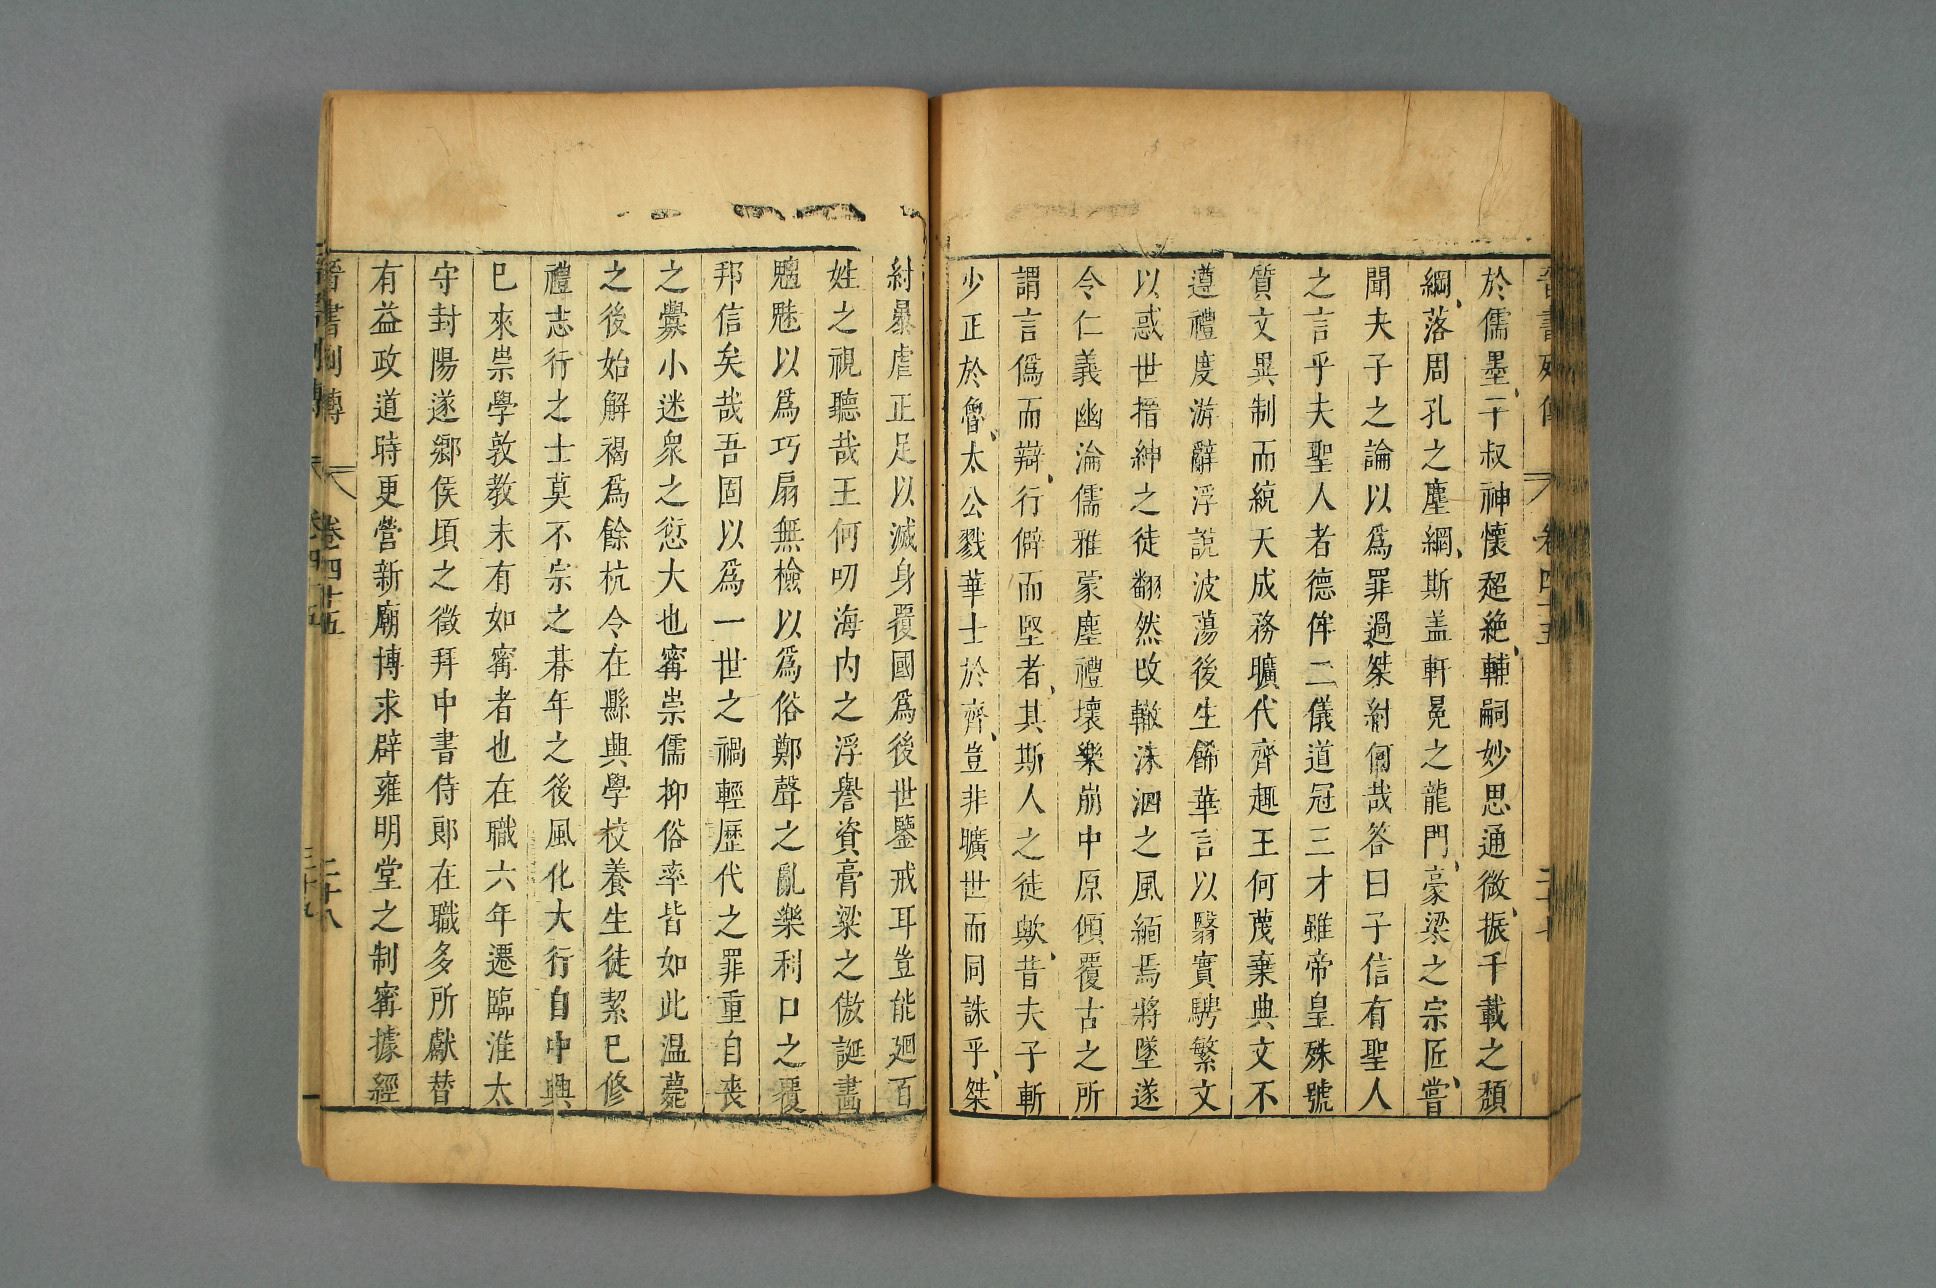 於儒墨平叔神懷超絶輔嗣妙思通微振千載之頹
綱落周孔之塵網斯盖軒冕之龍門豪梁之宗匠嘗
聞夫子之論以爲罪過桀紂何哉答曰子信有聖人
之言乎夫聖人者德侔二儀道冠三才雖帝皇殊號
質文異制而統天成務曠代齊趣王何蔑棄典文不
遵禮度游辭浮説波蕩後生飾華言以翳實騁繁文
以惑世搢紳之徒翻然改轍洙泗之風緬焉將墜遂
令仁義幽淪儒雅蒙塵禮壞樂崩中原傾覆古之所
謂言僞而辯行僻而堅者其斯人之徒歟昔夫子斬
少正於魯太公戮華士於齊豈非曠世而同誅乎桀
紂暴虐正足以滅身覆國爲後世鑒戒耳豈能廻百
姓之視聽哉王何叨海内之浮譽資膏粱之傲誕畵
魑魅以爲巧扇無檢以爲俗鄭聲之亂樂利口之覆
邦信矣哉吾固以爲一世之禍輕歷代之罪重自喪
之釁小迷衆之愆大也寗崇儒抑俗率皆如此温薨
之後始解褐爲餘杭令在縣興學校養生徒絜已修
禮志行之士莫不宗之朞年之後風化大行自中興
已來崇學敦教未有如寗者也在職六年遷臨淮太
守封陽遂鄉侯頃之徵拜中書侍郎在職多所獻替
有益政道時更營新廟博求辟雍明堂之制寗據經
晉書列傳 卷四十五 二十八